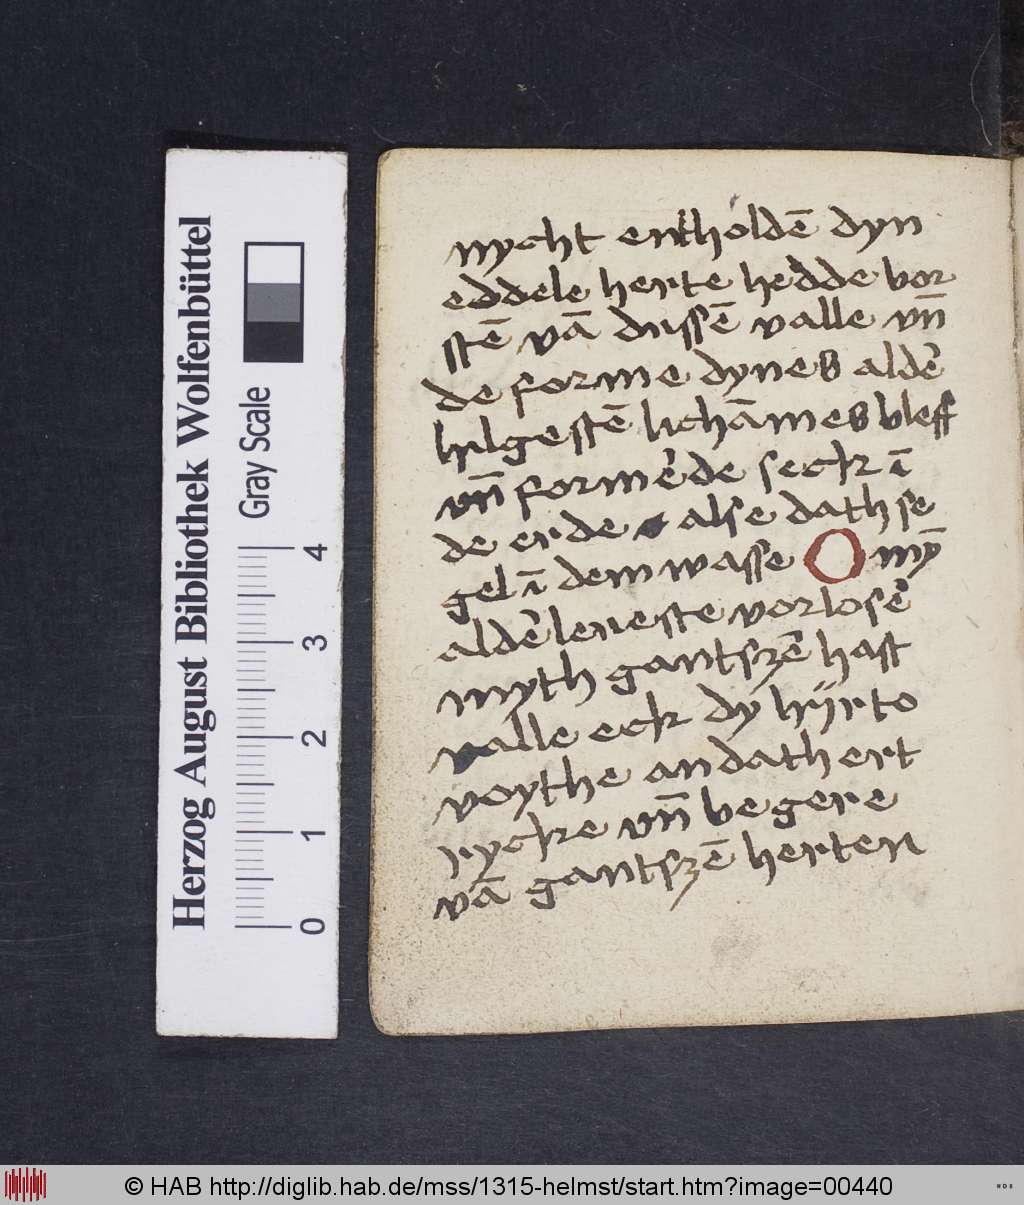 nycht entholdē dyn
eddele herte hedde bor
stē vā dussē valle vn̄
de forme dynes aldē
hilgestē lichāmes bleff
vn̄ formēde seck ī
de erde alse dath se
gel ī dem wasse O mȳ
aldē leueste vorlosē
myth gantszē hast
valle eck dy hÿr to
voythe an dath ert
rycke vn̄ begere
vā gantszē herten
Herzog August Bibliothek Wolfenbüttel
Gray Scale
0 1 2 3 4
© HAB http://diglib.hab.de/mss/1315-helmst/start.htm?image=00440